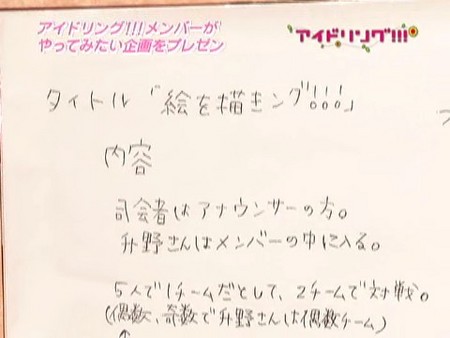 アイドリング!!!メンバーが
やってみたい企画をプレゼン
アイドリング!!!
タイトル「絵を描きング!!!」
内容
司会者はアナウンサーの方。
升野さんはメンバーの中に入る。
5人で1チームだとして、2チームで対戦。
(偶数、奇数で升野さんは偶数チーム)